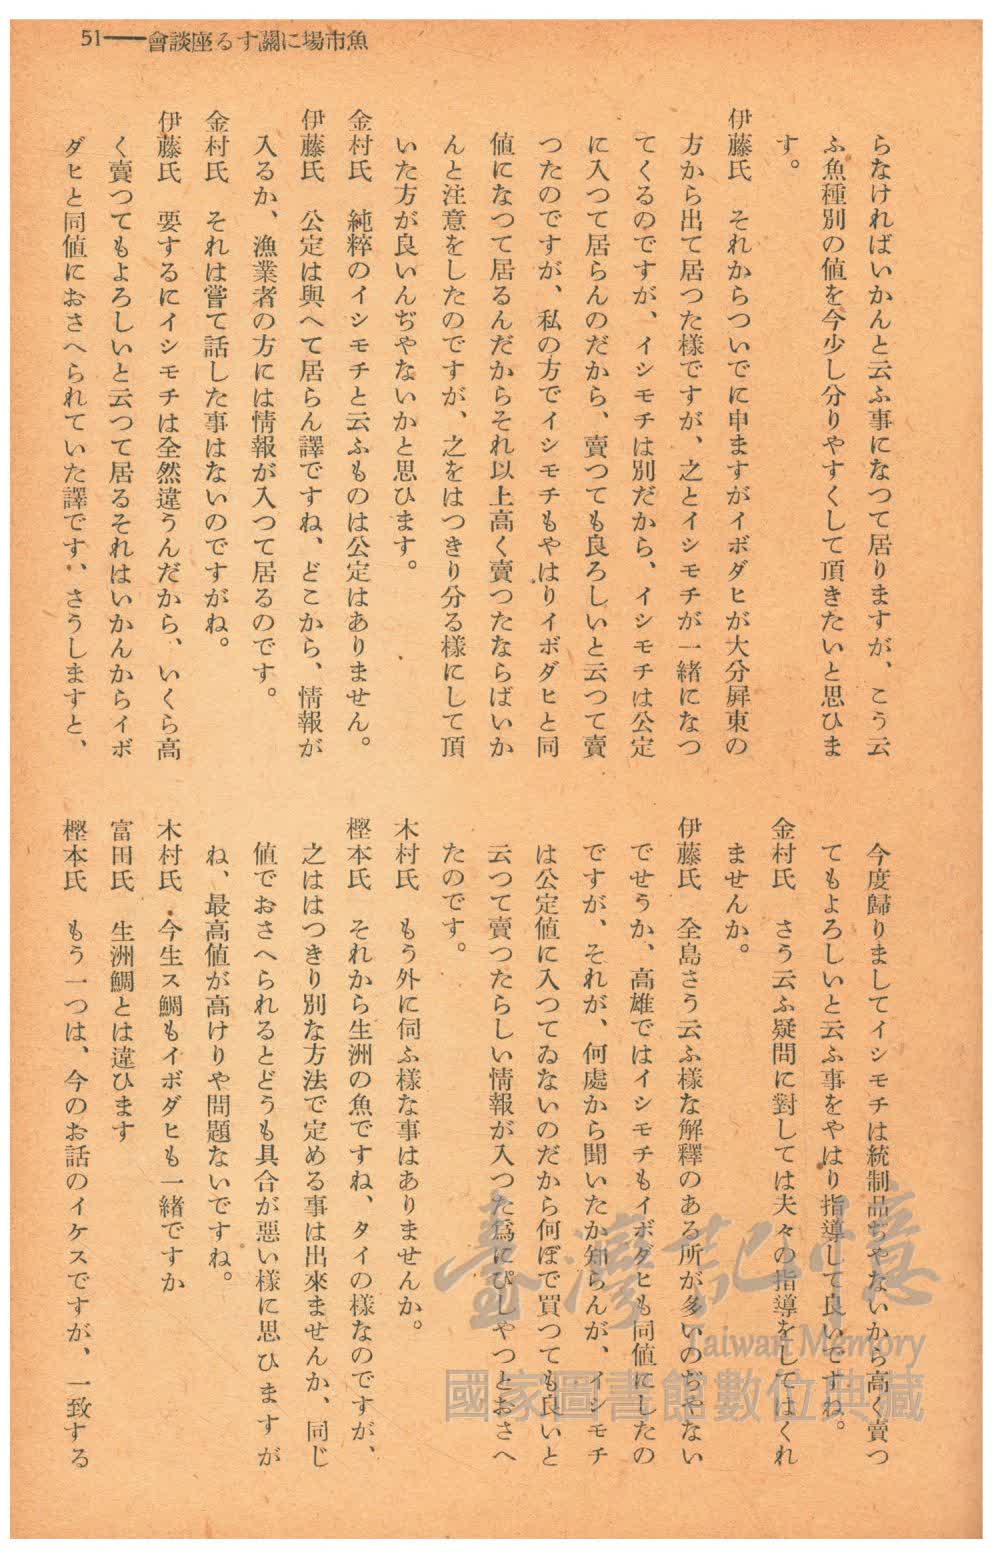 魚市場に關する座談會――51
らなければいかんと云ふ事になつて居りますが、こう云
ふ魚種別の値を今少し分りやすくして頂きたいと思ひま
す。
伊藤氏　それからついでに申ますがイボダヒが大分屛東の
方から出て居つた樣ですが、之とイシモチが一緒になつ
てくるのですが、イシモチは別だから、イシモチは公定
に入つて居らんのだから、賣つても良ろしいと云つて賣
つたのですが、私の方でイシモチもやはりイボダヒと同
値になつて居るんだからそれ以上高く賣つたならばいか
んと注意をしたのですが、之をはつきり分る樣にして頂
いた方が良いんぢやないかと思ひます。
金村氏　純粹のイシモチと云ふものは公定はありません。
伊藤氏　公定は與へて居らん譯ですね、どこから、情報が
入るか、漁業者の方には情報が入つて居るのです。
金村氏　それは嘗て話した事はないのですがね。
伊藤氏　要するにイシモチは全然違うんだから、いくら高
く賣つてもよろしいと云つて居るそれはいかんからイボ
ダヒと同値におさへられていた譯です、さうしますと、
今度歸りましてイシモチは統制品ぢやないから高く賣つ
てもよろしいと云ふ事をやはり指導して良いですね。
金村氏　さう云ふ疑問に對しては夫々の指導をしてはくれ
ませんか。
伊藤氏　全島さう云ふ樣な解釋のある所が多いのぢやない
でせうか、高雄ではイシモチもイボダヒも同値にしたの
ですが、それが、何處から聞いたか知らんが、イシモチ
は公定値に入つてゐないのだから何ぼで買つても良いと
云つて賣つたらしい情報が入つた爲にぴしやつとおさへ
たのです。
木村氏　もう外に伺ふ樣な事はありませんか。
樫本氏　それから生洲の魚ですね、タイの樣なのですが、
之ははつきり別な方法で定める事は出來ませんか、同じ
値でおさへられるとどうも具合が惡い樣に思ひますが
ね、最高値が高けりや問題ないですね。
木村氏　今生ス鯛もイボダヒも一緒ですか
富田氏　生洲鯛とは違ひます
樫本氏　もう一つは、今のお話のイケスですが、一致する
臺灣記憶
Taiwan Memory
國家圖書館數位典藏